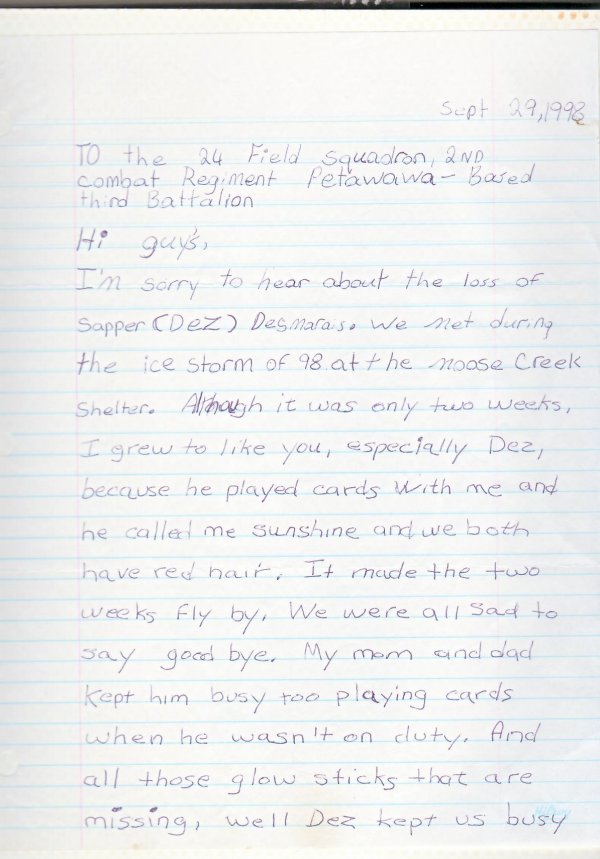 Sept 29, 1998
TO the 24 Field Squadron, 2ND
combat Regiment Petawawa - Based
third Battalion
Hi guy's,
I'm sorry to hear about the loss of
Sapper (DEZ) Desmarais. We met during
the ice storm of 98 at the Moose Creek
Shelter. Although it was only two weeks,
I grew to like you, especially Dez,
because he played cards with me and
he called me sunshine and we both
have red hair. It made the two
weeks fly by. We were all sad to
say good bye. My mom and dad
kept him busy too playing cards
when he wasn't on duty. And
all those glow sticks that are
missing, well Dez kept us busy